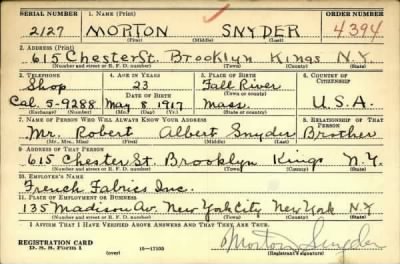 SERIAL NUMBER 1. NAME (Print) ORDER NUMBER
2127 MORTON SNYDER 4394
(First) (Middle) (Last)
2. ADDRESS (Print)
615 Chester St. Brooklyn Kings N.Y.
(Number and street or R. F. D. number) (Town) (County) (State)
3. TELEPHONE 4. AGE IN YEARS 5. PLACE OF BIRTH 6. COUNTRY OF CITIZENSHIP
Shop 23 Fall River
DATE OF BIRTH
Cal. 5-9288 May 8 1917 Mass. U.S.A.
(Exchange) (Number) (Mo.) (Day) (Yr.) (State or country)
7. NAME OF PERSON WHO WILL ALWAYS KNOW YOUR ADDRESS 8. RELATIONSHIP OF THAT PERSON
Mr. Robert Albert Snyder Brother
(Mr., Mrs., Miss) (First) (Middle) (Last)
9. ADDRESS OF THAT PERSON
615 Chester St. Brooklyn Kings N.Y.
(Number and street or R. F. D. number) (Town) (County) (State)
10. EMPLOYER'S NAME
French Fabrics Inc.
11. PLACE OF EMPLOYMENT OR BUSINESS
135 Madison Av. New York City New York N.Y
(Number and street or R. F. D. number) (Town) (County) (State)
I AFFIRM THAT I HAVE VERIFIED ABOVE ANSWERS AND THAT THEY ARE TRUE.
REGISTRATION CARD
D. S. S. Form 1 (over) 16—17105 Morton Snyder
(Registrant's signature)